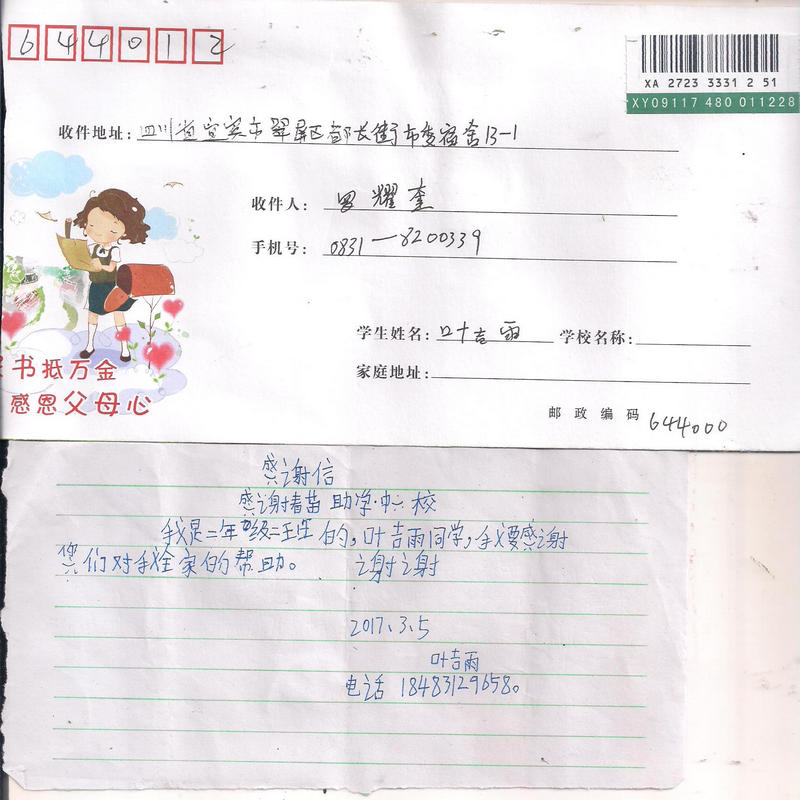 644012
XA 2723 3331 2 51
XY09117 480 011228
收件地址: 四川省宜宾市翠屏区都长街市委宿舍13-1
收件人: 罗耀奎
手机号: 0831-8200339
学生姓名: 叶吉雨 学校名称:
家庭地址:
书抵万金
感恩父母心
邮政编码 644000
感谢信
感谢春苗助学中校
我是二年级二班的,叶吉雨同学,我要感谢
您们对我全家的帮助。 谢谢
2017.3.5
叶吉雨
电话 18483129658。